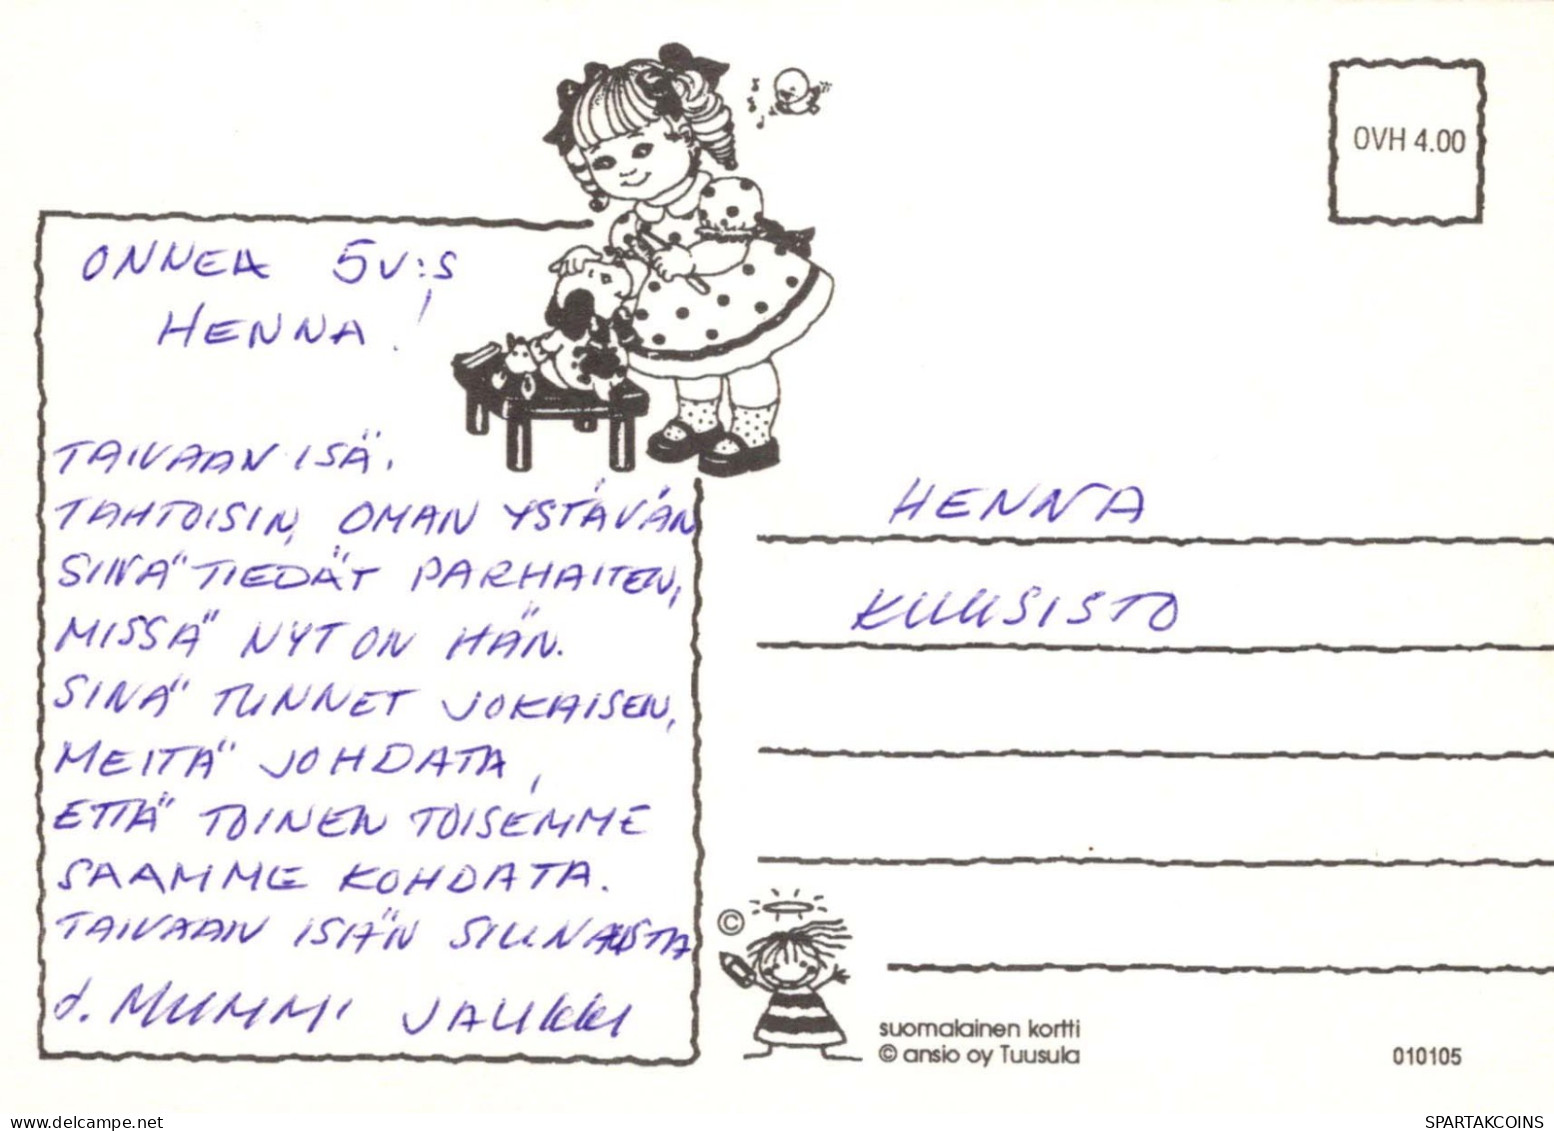 OVH 4.00
ONNEA 5V:S
HENNA!
TAIVAAN ISÄ,
TAHTOISIN, OMAN YSTÄVÄN
SINÄ TIEDÄT PARHAITEN,
MISSÄ NYT ON HÄN.
SINÄ TUNNET JOKAISEN,
MEITÄ JOHDATA,
ETTÄ TOINEN TOISEMME
SAAMME KOHDATA.
TAIVAAN ISÄN SIUNAUSTA
MUMMI
HENNA
KUUSISTO
©
suomalainen kortti
© ansio oy Tuusula
010105
hippostcard.com
SPARTAKCOINS